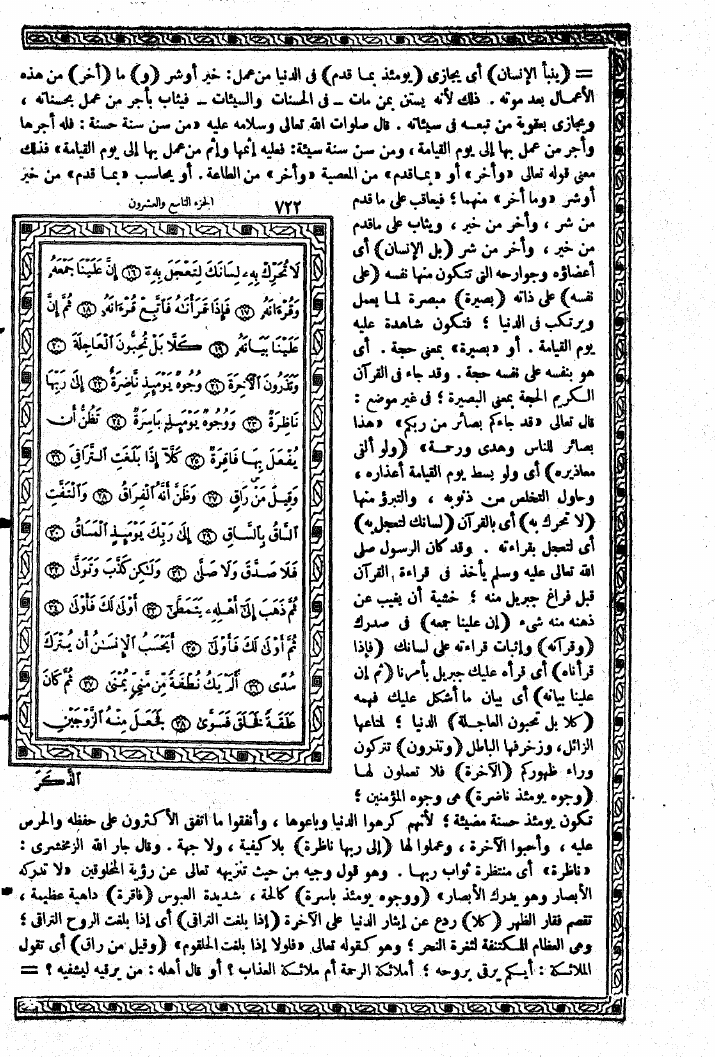 = (ينبأ الإنسان) أى يجازى (يومئذ بما قدم) فى الدنيا من عمل: خير أوشر (و) ما (أخر) من هذه
الأعمال بعد موته . ذلك لأنه يستن بمن مات - فى الحسنات والسيئات - فيثاب بأجر من عمل بحسناته ،
ويجازى بعقوبة من تبعه فى سيئاته . قال صلوات الله تعالى وسلامه عليه «من سن سنة حسنة : فله أجرها
وأجر من عمل بها إلى يوم القيامة ، ومن سن سنة سيئة: فعليه إثمها وإثم من عمل بها إلى يوم القيامة» فذلك
معنى قوله تعالى «وأخر» أو «بماقدم» من المعصية «وأخر» من الطاعة . أو يحاسب «بما قدم» من خير
أوشر «وما أخر» منهما ؛ فيعاقب على ما قدم
من شر ، وأخر من خير ، ويثاب على ماقدم
من خير ، وأخر من شر (بل الإنسان) أى
أعضاؤه وجوارحه التى تتكون منها نفسه (على
نفسه) على ذاته (بصيرة) مبصرة لما يعمل
ويرتكب فى الدنيا ؛ فتكون شاهدة عليه
يوم القيامة . أو «بصيرة» بمعنى حجة . أى
هو بنفسه على نفسه حجة . وقد جاء فى القرآن
الكريم الحجة بمعنى البصيرة ؛ فى غير موضع :
قال تعالى «قد جاءكم بصائر من ربكم» «هذا
بصائر للناس وهدى ورحمة» (ولو ألقى
معاذيره) أى ولو بسط يوم القيامة أعذاره ،
وحاول التخلص من ذنوبه ، والتبرؤ منها
(لا تحرك به) أى بالقرآن (لسانك لتعجل به)
أى لتعجل بقراءته . وقد كان الرسول صلى
الله تعالى عليه وسلم يأخذ فى قراءة القرآن
قبل فراغ جبريل منه ؛ خشية أن يغيب عن
ذهنه منه شىء (إن علينا جمعه) فى صدرك
(وقرآنه) وإثبات قراءته على لسانك (فإذا
قرأناه) أى قرأه عليك جبريل بأمرنا (ثم إن
علينا بيانه) أى بيان ما أشكل عليك فهمه
(كلا بل تحبون العاجلة) الدنيا ؛ لمتاعها
الزائل، وزخرفها الباطل (وتذرون) تتركون
وراء ظهوركم (الآخرة) فلا تعملون لها
(وجوه يومئذ ناضرة) هى وجوه المؤمنين ؛
تكون يومئذ حسنة مضيئة ؛ لأنهم كرهوا الدنيا وباعوها ، وأنفقوا ما اتفق الأكثرون على حفظه والحرص
عليه ، وأحبوا الآخرة ، وعملوا لها (إلى ربها ناظرة) بلا كيفية ، ولا جهة . وقال جار الله الزمخشرى :
«ناظرة» أى منتظرة ثواب ربها . وهو قول وجيه من حيث تنزيهه تعالى عن رؤية المخلوقين «لا تدركه
الأبصار وهو يدرك الأبصار» (ووجوه يومئذ باسرة) كالحة ، شديدة العبوس (فاقرة) داهية عظيمة ،
تقصم فقار الظهر (كلا) ردع عن إيثار الدنيا على الآخرة (إذا بلغت التراقى) أى إذا بلغت الروح التراقى ؛
وهى العظام المكتنفة لثغرة النحر ؛ وهو كقوله تعالى «فلولا إذا بلغت الحلقوم» (وقيل من راق) أى تقول
الملائكة : أيكم يرقى بروحه ؛ أملائكة الرحمة أم ملائكة العذاب ؟ أو قال أهله : من يرقيه ليشفيه ؟ =
٧٢٢ الجزء التاسع والعشرون
لَا تُحَرِّكْ بِهِ لِسَانَكَ لِتَعْجَلَ بِهِ ١٦ إِنَّ عَلَيْنَا جَمْعَهُ
وَقُرْءَانَهُ ١٧ فَإِذَا قَرَأْنَٰهُ فَاتَّبِعْ قُرْءَانَهُ ١٨ ثُمَّ إِنَّ
عَلَيْنَا بَيَانَهُ ١٩ كَلَّا بَلْ تُحِبُّونَ الْعَاجِلَةَ ٢٠
وَتَذَرُونَ الْآخِرَةَ ٢١ وُجُوهٌ يَوْمَئِذٍ نَاضِرَةٌ ٢٢ إِلَىٰ رَبِّهَا
نَاظِرَةٌ ٢٣ وَوُجُوهٌ يَوْمَئِذٍ بَاسِرَةٌ ٢٤ تَظُنُّ أَن
يُفْعَلَ بِهَا فَاقِرَةٌ ٢٥ كَلَّا إِذَا بَلَغَتِ التَّرَاقِيَ ٢٦
وَقِيلَ مَنْ رَاقٍ ٢٧ وَظَنَّ أَنَّهُ الْفِرَاقُ ٢٨ وَالْتَفَّتِ
السَّاقُ بِالسَّاقِ ٢٩ إِلَىٰ رَبِّكَ يَوْمَئِذٍ الْمَسَاقُ ٣٠
فَلَا صَدَّقَ وَلَا صَلَّىٰ ٣١ وَلَٰكِن كَذَّبَ وَتَوَلَّىٰ ٣٢
ثُمَّ ذَهَبَ إِلَىٰ أَهْلِهِ يَتَمَطَّىٰ ٣٣ أَوْلَىٰ لَكَ فَأَوْلَىٰ ٣٤
ثُمَّ أَوْلَىٰ لَكَ فَأَوْلَىٰ ٣٥ أَيَحْسَبُ الْإِنسَٰنُ أَن يُتْرَكَ
سُدًى ٣٦ أَلَمْ يَكُ نُطْفَةً مِّن مَّنِيٍّ يُمْنَىٰ ٣٧ ثُمَّ كَانَ
عَلَقَةً فَخَلَقَ فَسَوَّىٰ ٣٨ فَجَعَلَ مِنْهُ الزَّوْجَيْنِ
الذَّكَرَ